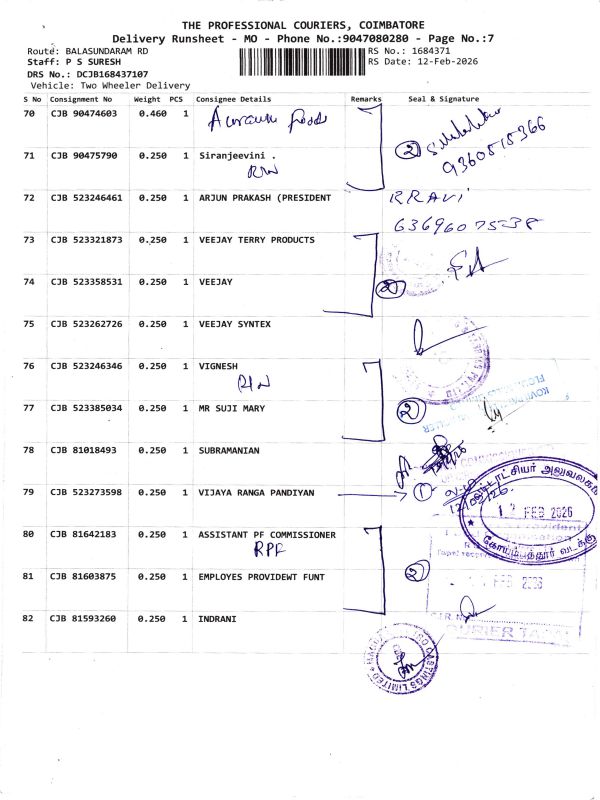 THE PROFESSIONAL COURIERS, COIMBATORE
Delivery Runsheet - MO - Phone No.:9047080280 - Page No.:7
Route: BALASUNDARAM RD
RS No.: 1684371
Staff: P S SURESH
RS Date: 12-Feb-2026
DRS No.: DCJB168437107
Vehicle: Two Wheeler Delivery
S No Consignment No Weight PCS Consignee Details Remarks Seal & Signature
70 CJB 90474603 0.460 1
2
9360515366
71 CJB 90475790 0.250 1 Siranjeevini .
72 CJB 523246461 0.250 1 ARJUN PRAKASH (PRESIDENT RRAVI
6369607538
73 CJB 523321873 0.250 1 VEEJAY TERRY PRODUCTS
74 CJB 523358531 0.250 1 VEEJAY 2
75 CJB 523262726 0.250 1 VEEJAY SYNTEX
76 CJB 523246346 0.250 1 VIGNESH
77 CJB 523385034 0.250 1 MR SUJI MARY 2
78 CJB 81018493 0.250 1 SUBRAMANIAN
79 CJB 523273598 0.250 1 VIJAYA RANGA PANDIYAN 1
12/02/26.
12 FEB 2026
கோயம்புத்தூர் வடக்கு
80 CJB 81642183 0.250 1 ASSISTANT PF COMMISSIONER
RPF
81 CJB 81603875 0.250 1 EMPLOYES PROVIDEWT FUNT 2
FEB 2026
82 CJB 81593260 0.250 1 INDRANI
CASTINGS LIMITED